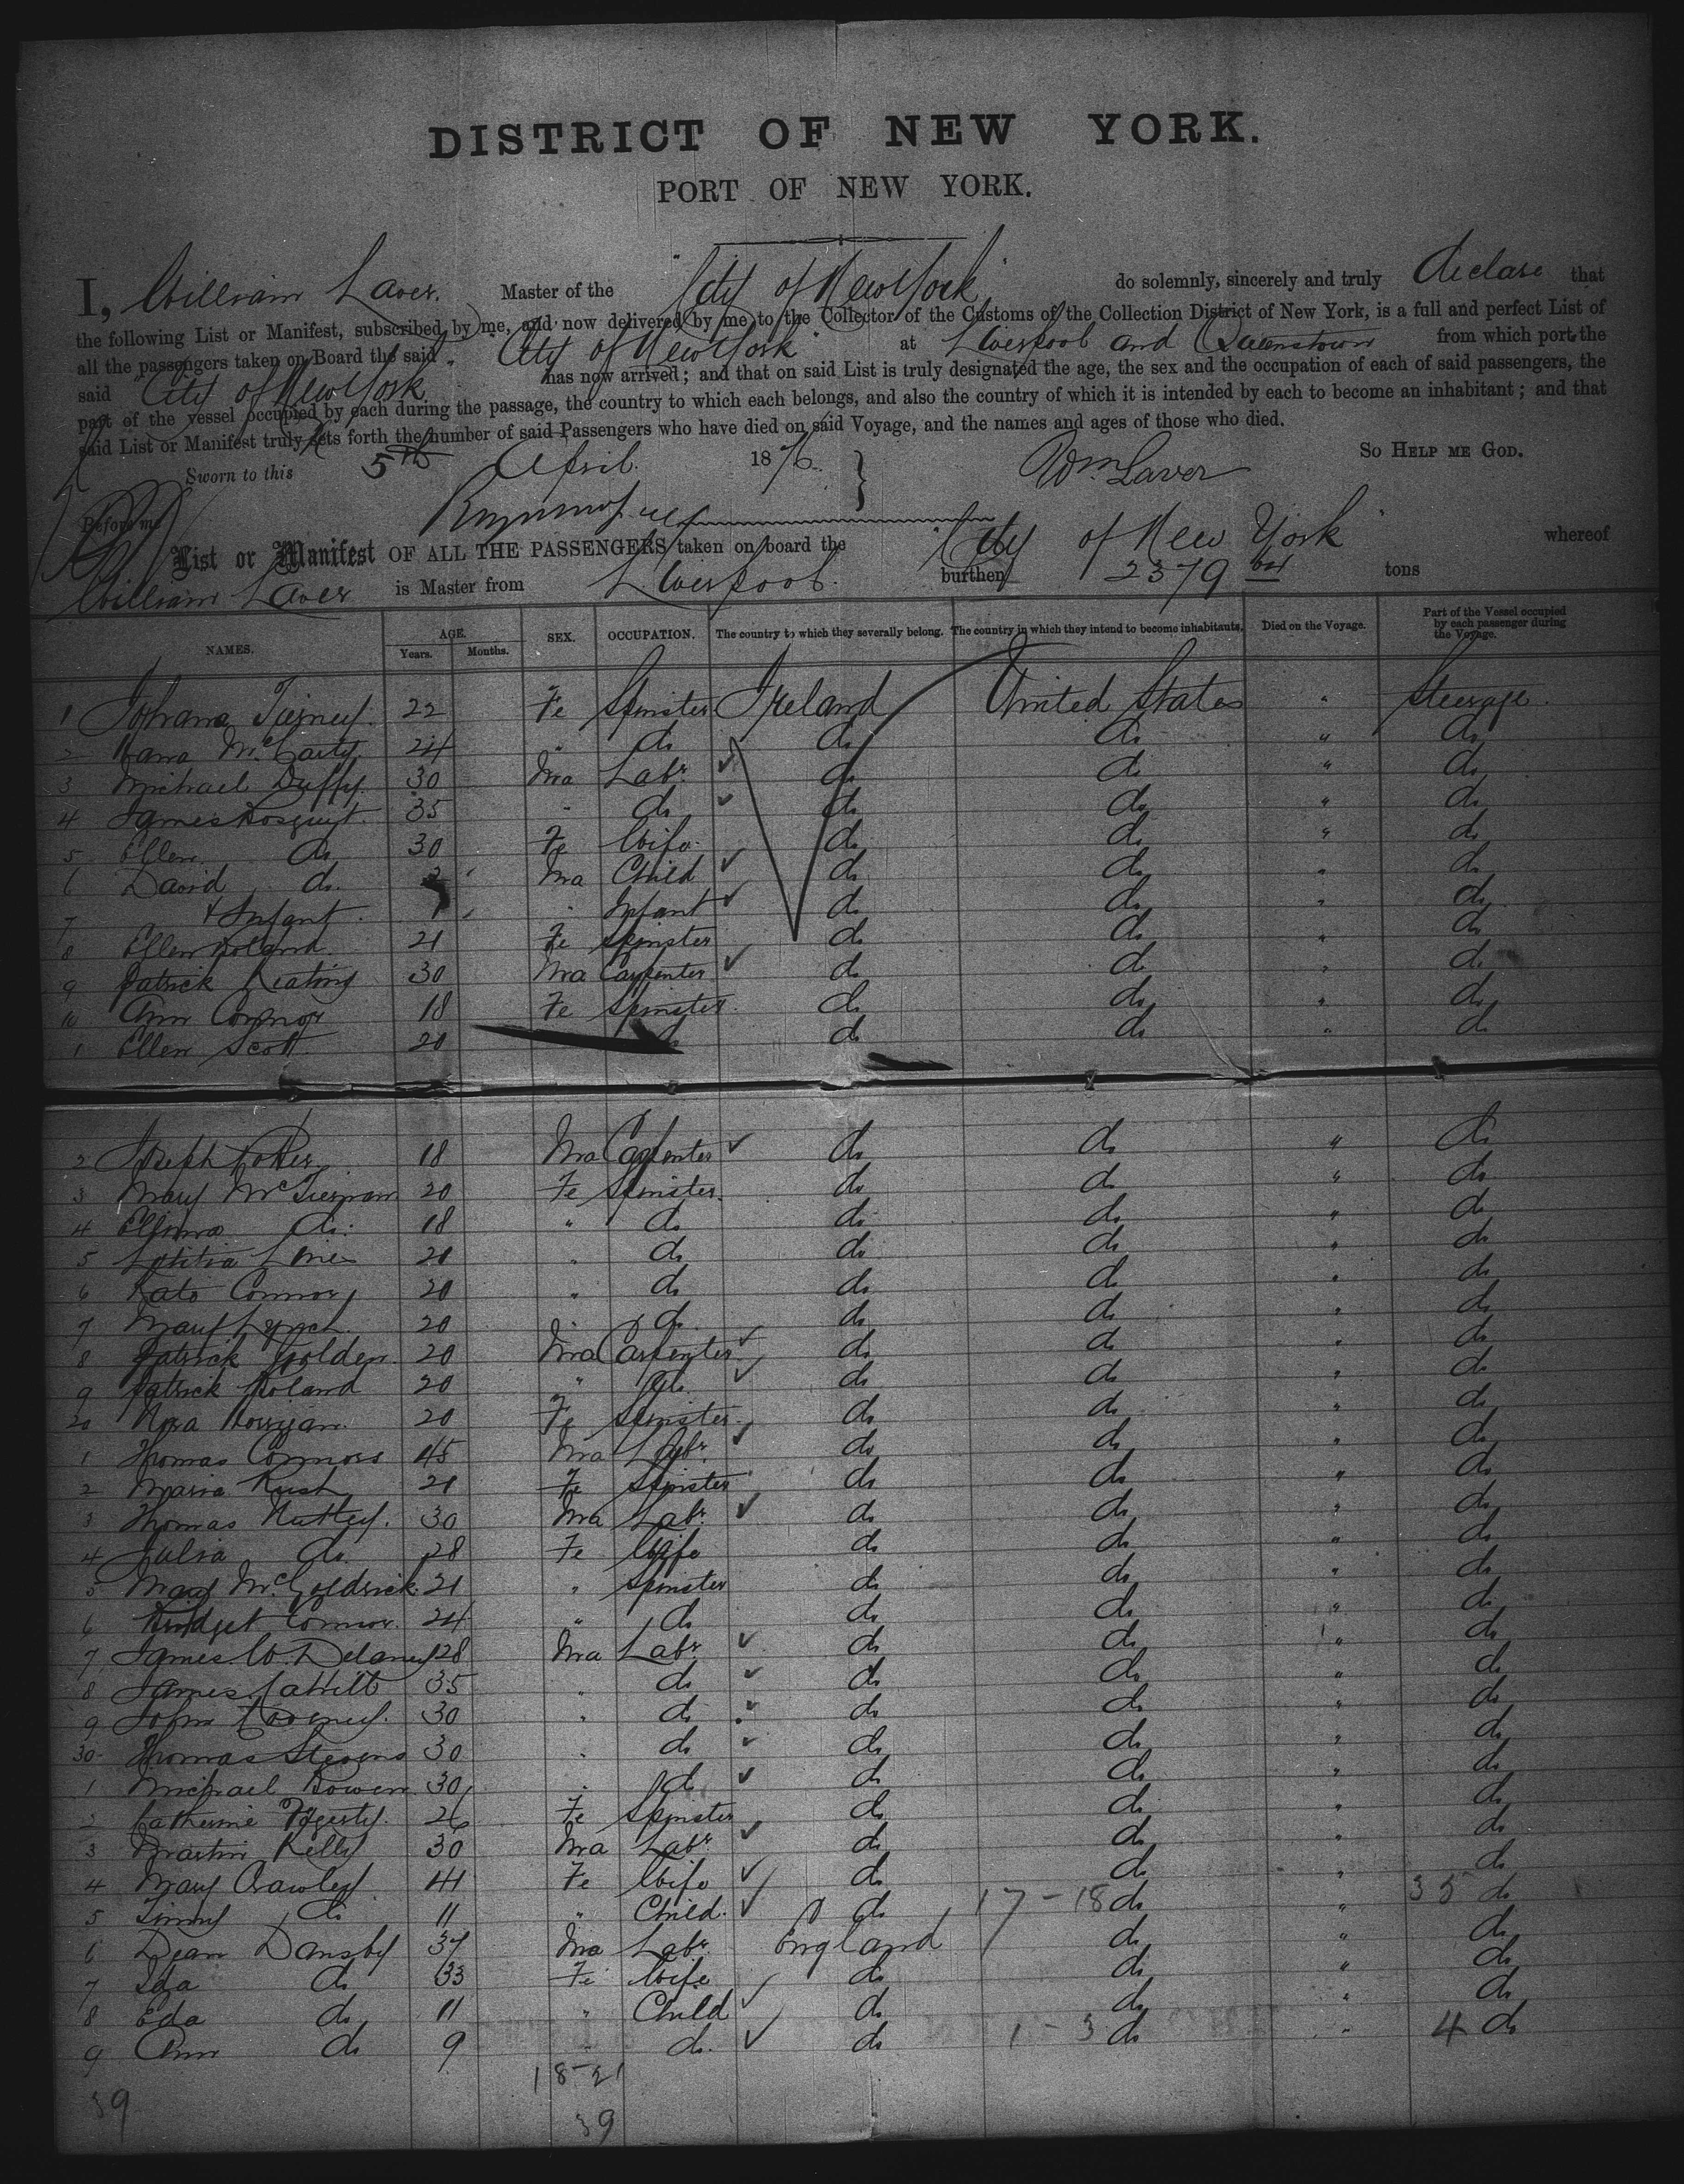 DISTRICT OF NEW YORK.
PORT OF NEW YORK.
I, William Laver. Master of the "City of New York" do solemnly, sincerely and truly declare that
the following List or Manifest, subscribed by me, and now delivered by me to the Collector of the Customs of the Collection District of New York, is a full and perfect List of
all the passengers taken on Board the said "City of New York" at Liverpool and Queenstown from which port the
said "City of New York" has now arrived; and that on said List is truly designated the age, the sex and the occupation of each of said passengers, the
part of the vessel occupied by each during the passage, the country to which each belongs, and also the country of which it is intended by each to become an inhabitant; and that
said List or Manifest truly sets forth the number of said Passengers who have died on said Voyage, and the names and ages of those who died.
So HELP ME GOD.
Sworn to this 5th April. 1876. Wm Laver
Before me
List or Manifest OF ALL THE PASSENGERS taken on board the "City of New York" whereof
William Laver is Master from Liverpool. burthen 2379 tons
NAMES. AGE. Years. Months. SEX. OCCUPATION. The country to which they severally belong. The country in which they intend to become inhabitants. Died on the Voyage. Part of the Vessel occupied by each passenger during the Voyage.
1 Johana Tierney. 22 Fe Spinster Ireland United States " Steerage.
2 McCarty 24 " do do do " do
3 Michael Duffy. 30 Ma Labr do do " do
4 James 35 " do do do " do
5 Ellen do 30 Fe Wife do do " do
6 David do. Ma Child do do " do
7 & Infant. 1 " Infant do do " do
8 Ellen Boland 21 Fe Spinster do do " do
9 Patrick Keating 30 Ma Carpenter do do " do
10 Ann Connor 18 Fe Spinster. do do " do
1 Ellen Scott 20 do do " do
2 Joseph 18 Ma Carpenter do do " do
3 Mary McTiernan 20 Fe Spinster. do do " do
4 do. 18 " do do do " do
5 Letitia 21 " do do do " do
6 Kate Connor 20 " do do do " do
7 Mary Lynch 20 " do do do " do
8 Patrick Golden 20 Ma Carpenter do do " do
9 Patrick Boland 20 " do do do " do
20 Nora Horrigan. 20 Fe Spinster. do do " do
1 Thomas Connors 45 Ma Labr. do do " do
2 Maria Rush 21 Fe Spinster do do " do
3 Thomas Nuttey. 30 Ma Labr. do do " do
4 Julia do. 28 Fe Wife do do " do
5 Mary McGoldrick 21 " Spinster do do " do
6 Bridget Connor. 24 " do do do " do
7 James W. Delaney 28 Ma Labr. do do " do
8 James Cahill 35 " do do do " do
9 John 30 " do do do " do
30 Thomas Stevens 30 " do do do " do
1 Michael Bowen 30 " do do do " do
2 Catherine Fogerty. 26 Fe Spinster do do " do
3 Martin Kelly 30 Ma Labr do do " do
4 Mary Crawley 41 Fe Wife do do " do
5 do 11 " Child. do 17-18 do " 35 do
6 Dean Dansby 37 Ma Labr. England do " do
7 Iza do 33 Fe Wife do do " do
8 Eda do 11 " Child do do " do
9 Ann do 9 " do. do 1-3 do " 4 do
18-21
39 39